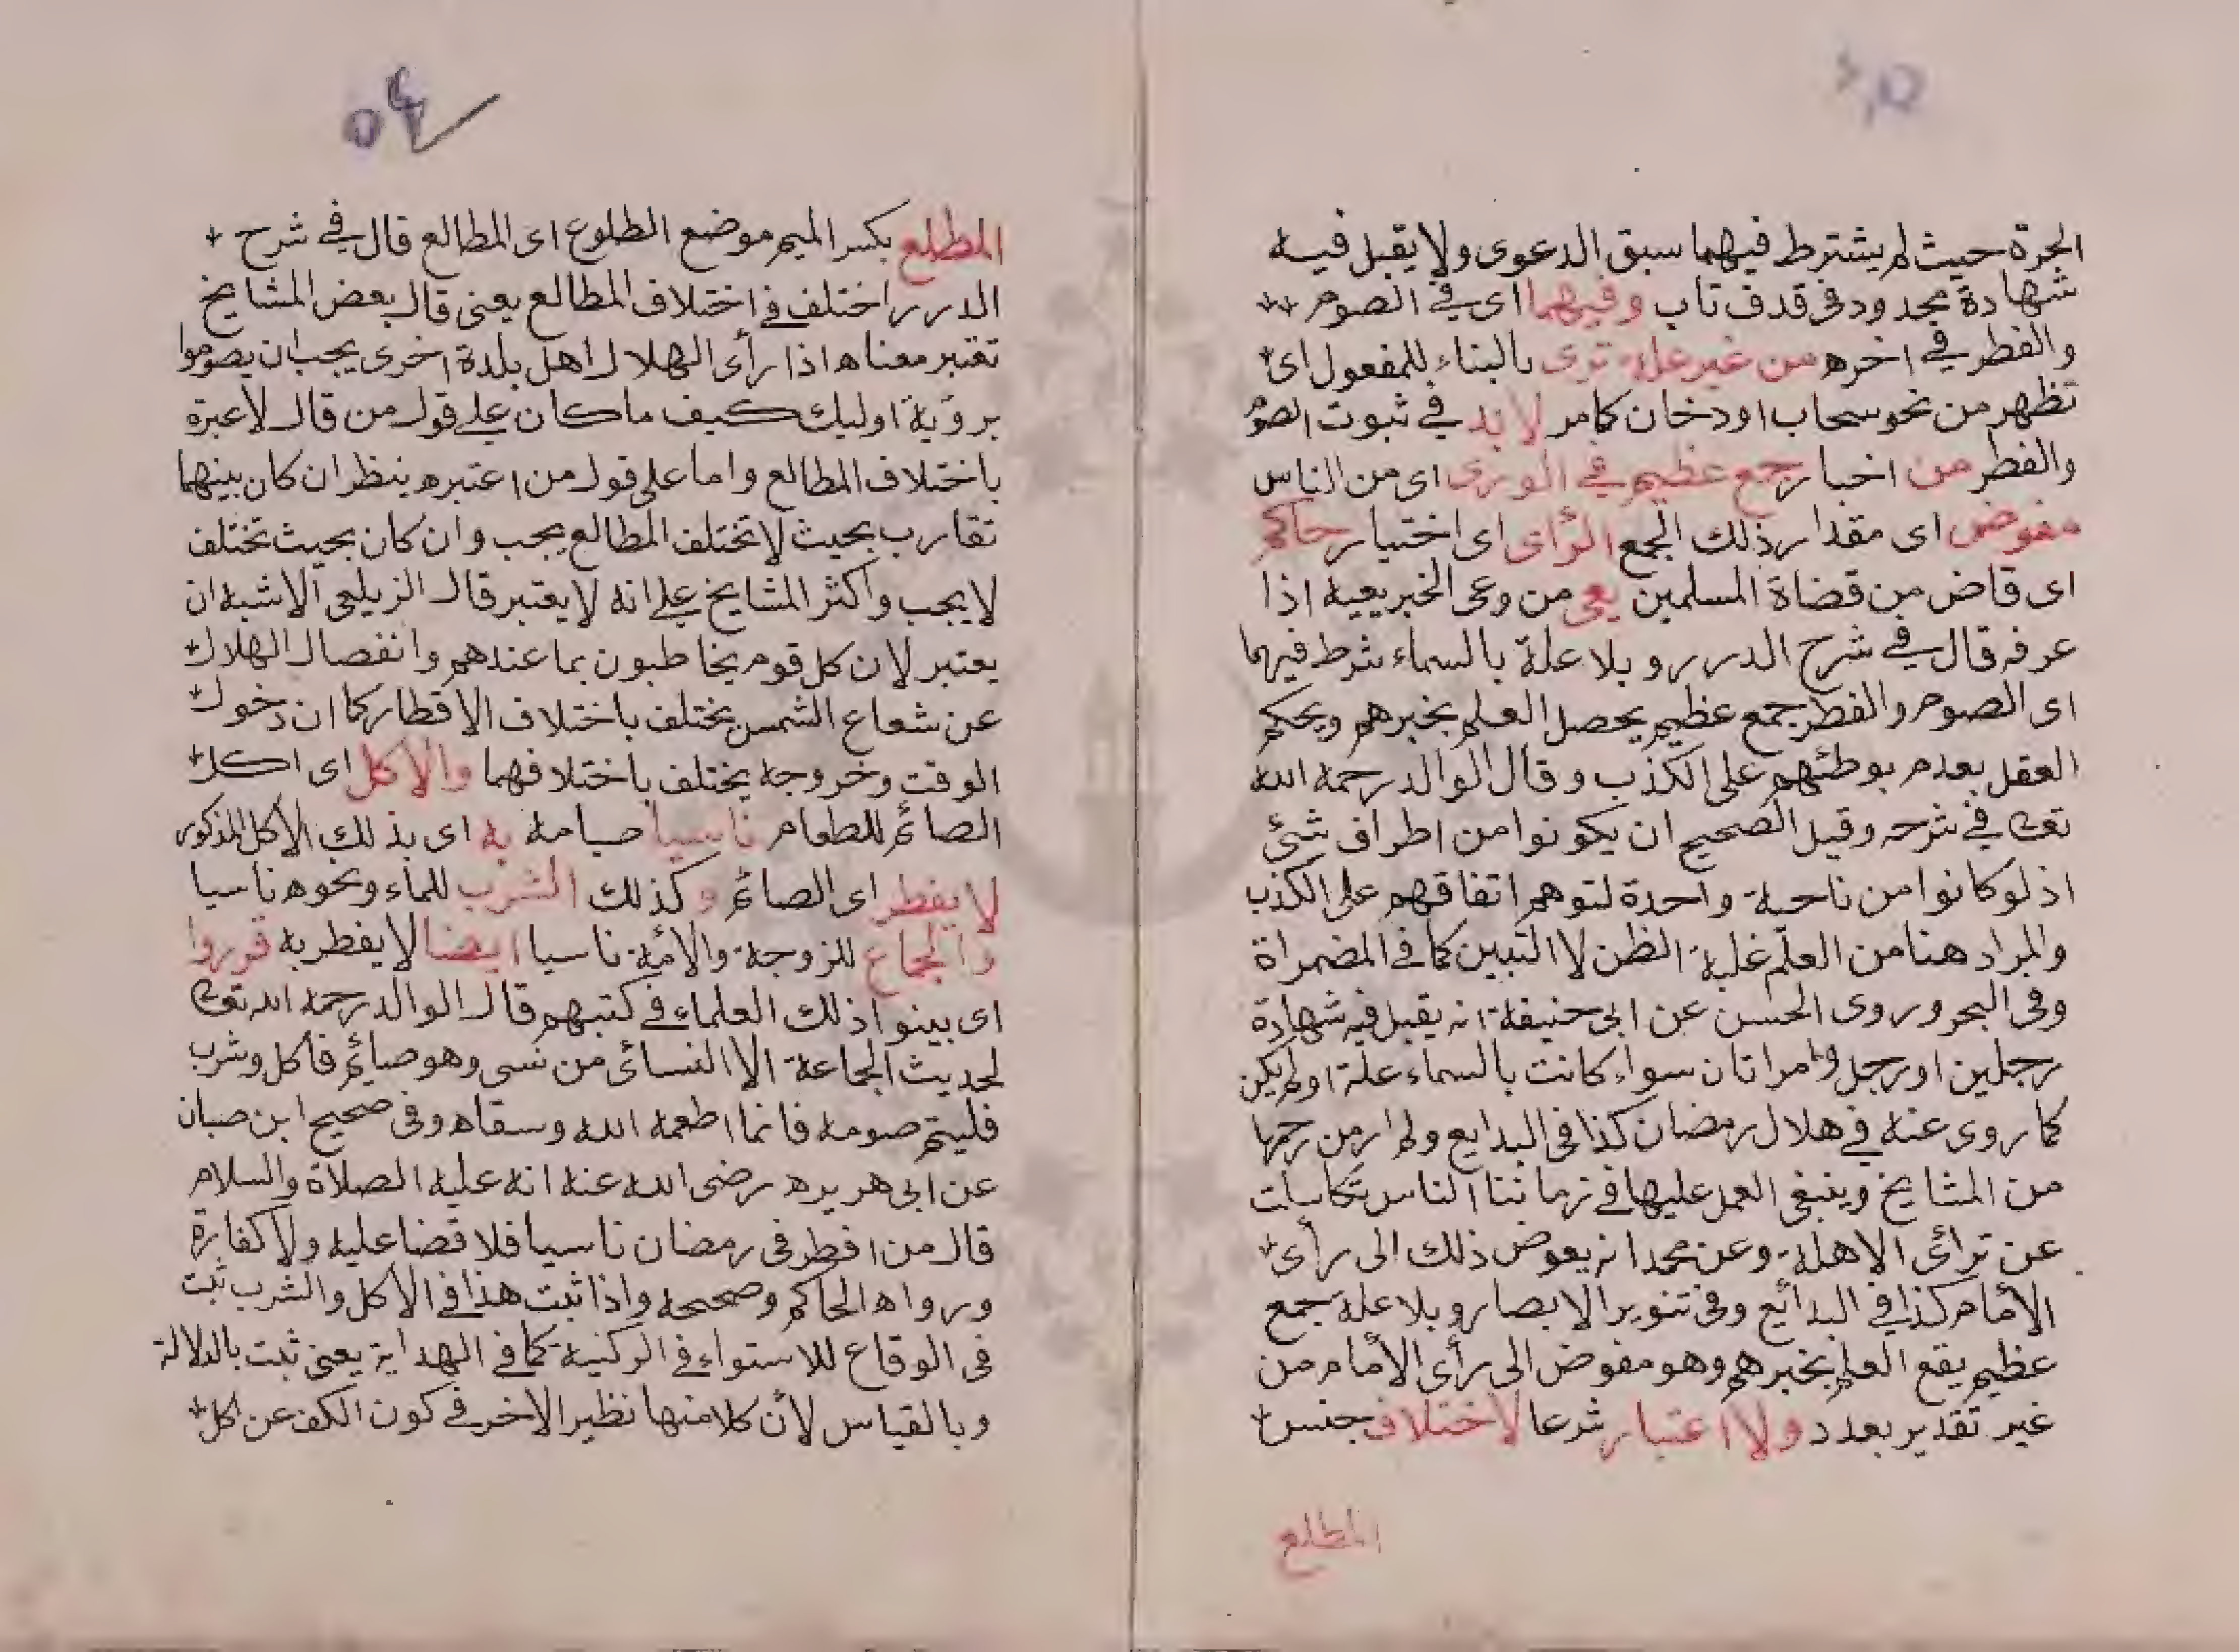 الحرة حيث لم يشترط فيهما سبق الدعوى ولا يقبل فيه
شهادة محدود فى قدف تاب وفيهما اى فى الصوم
والفطر فى اخره من غير علة ترى بالبناء للمفعول اى
تظهر من نحو سحاب اودخان كامر لا بد فى ثبوت الصوم
والفطر من اخبار جمع عظيم فى الورى اى من الناس
مفوض اى مقدار ذلك الجمع الرأى اى اختيار حاكم
اى قاض من قضاة المسلمين يعى من وعى الخبر يعيه اذا
عرفه قال فى شرح الدرر وبلا علة بالسماء شرط فيهما
اى الصوم والفطر جمع عظيم يحصل العلم بخبرهم ويحكم
العقل بعدم بوطئهم على الكذب وقال الوالد رحمه الله
تعالى فى شرحه وقيل الصحيح ان يكونوا من اطراف شئ
اذ لوكانوا من ناحية واحدة لتوهم اتفاقهم على الكذب
والمراد هنا من العلم غلبة الظن لا التبين كما فى المضمراة
وفى البحر وروى الحسن عن ابى حنيفة انه يقبل فيه شهادة
رجلين او رجل وامراتان سواء كانت بالسماء علة اولم يكن
كما روى عنه فى هلال رمضان كذا فى البدايع ولم ار من رجحها
من المشايخ وينبغى العمل عليها فى زماننا الناس تكاسلت
عن ترائى الاهلة وعن محمد انه يعوض ذلك الى رأى
الأمام كذا فى البدائع وفى تنوير الابصار وبلا علة جمع
عظيم يقع العلم بخبرهم وهو مفوض الى رأى الأمام من
غير تقدير بعدد ولا اعتبار شرعا لاختلاف جنس
المطلع
٥٤
المطلع بكسر الميم موضع الطلوع اى المطالع قال فى شرح
الدرر اختلف فى اختلاف المطالع يعنى قال بعض المشايخ
تعتبر معناه اذا رأى الهلال اهل بلدة اخرى يجب ان يصوموا
برؤية اوليك كيف ما كان على قول من قال لاعبرة
باختلاف المطالع واما على قول من اعتبره ينظر ان كان بينهما
تقارب بحيث لا تختلف المطالع يجب وان كان بحيث تختلف
لا يجب واكثر المشايخ على انه لا يعتبر قال الزيلعى الاشبه ان
يعتبر لان كل قوم يخاطبون بما عندهم وانفصال الهلال
عن شعاع الشمس يختلف باختلاف الاقطار كما ان دخول
الوقت وخروجه يختلف باختلافهما والاكل اى اكل
الصائم للطعام ناسيا صيامه به اى بذلك الاكل المذكور
لا يفطر اى الصائم وكذلك الشرب للماء ونحوه ناسيا
والجماع للزوجة والأمة ناسيا ايضا لا يفطر به قرروا
اى بينوا ذلك العلماء فى كتبهم قال الوالد رحمه الله تعالى
لحديث الجماعة الا النسائى من نسى وهو صائم فاكل وشرب
فليتم صومه فانما اطعمه الله وسقاه وفى صحيح ابن حبان
عن ابى هريره رضى الله عنه انه عليه الصلاة والسلام
قال من افطر فى رمضان ناسيا فلا قضا عليه ولا كفارة
ورواه الحاكم وصححه واذا ثبت هذا فى الاكل والشرب ثبت
فى الوقاع للاستواء فى الركنية كما فى الهداية يعنى ثبت بالدلالة
وبالقياس لأن كلا منها نظير الاخر فى كون الكف عن اكل